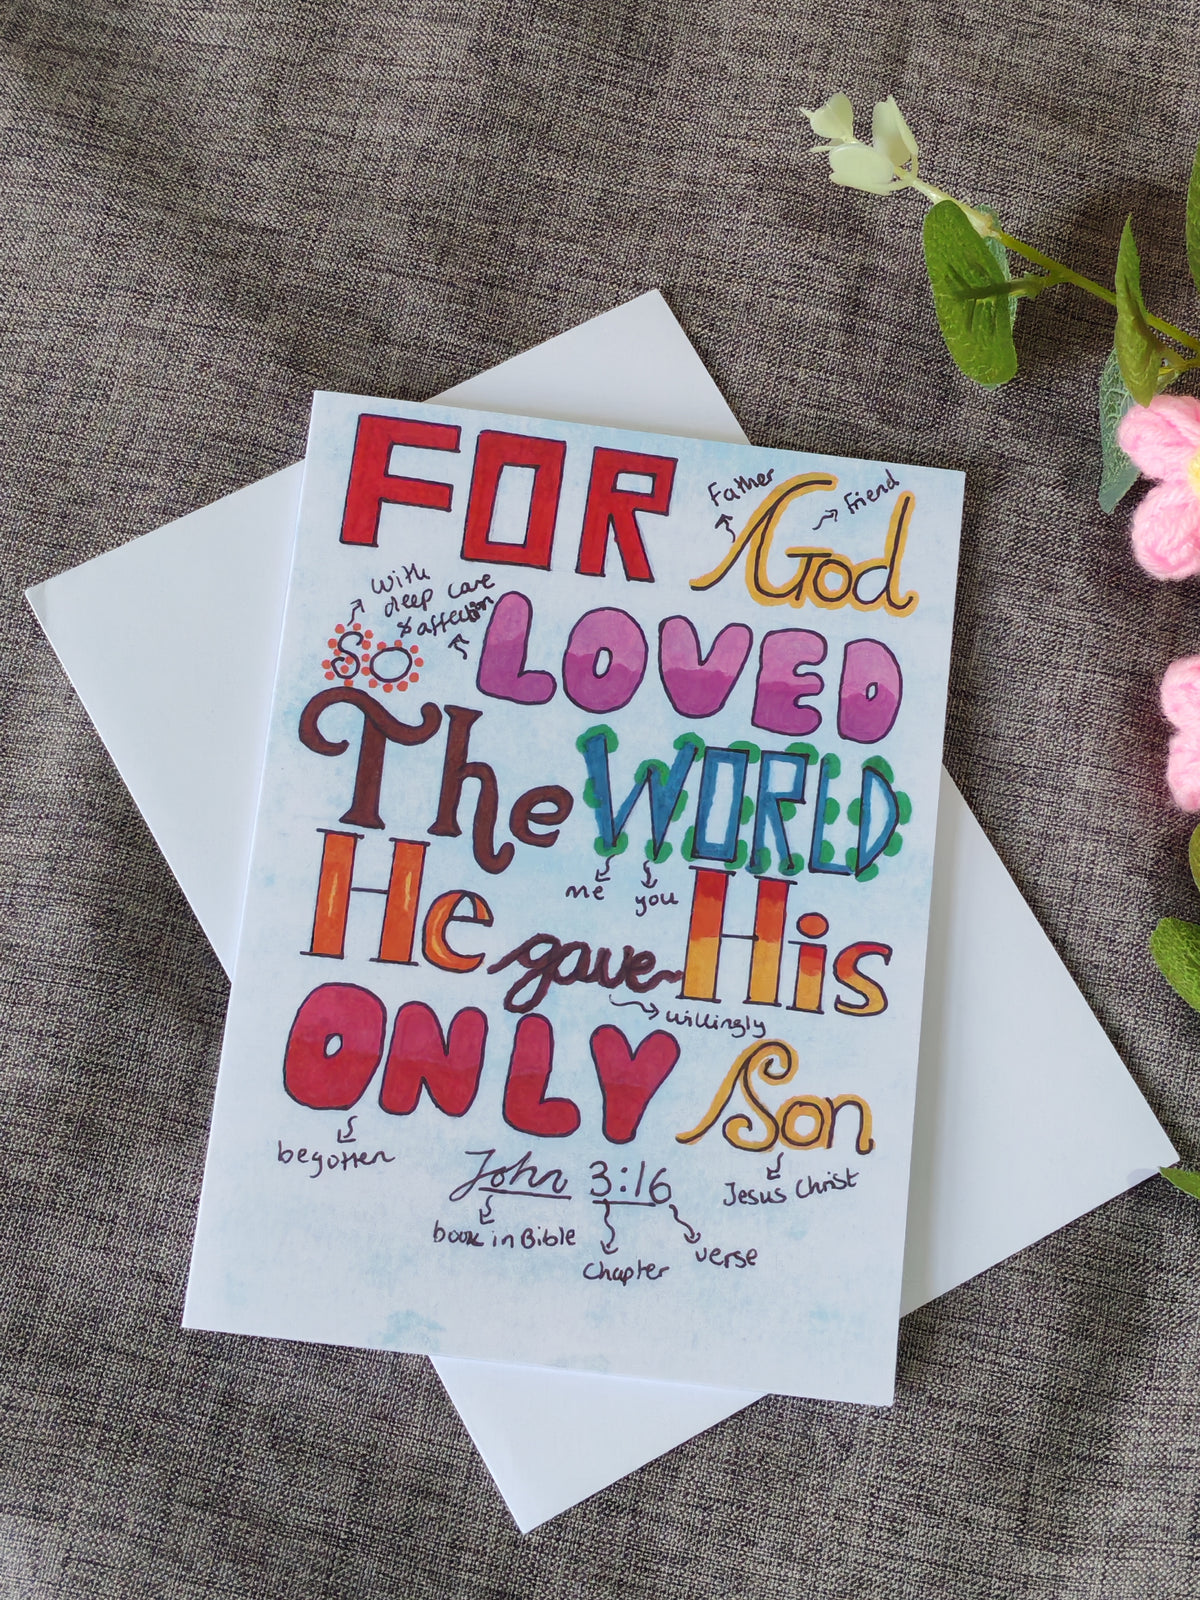 FOR God
Father
friend
with
deep care
& affection
So LOVED
The WORLD
me you
He gave His
willingly
ONLY Son
begotten
Jesus Christ
John 3:16
book in Bible
Chapter
verse